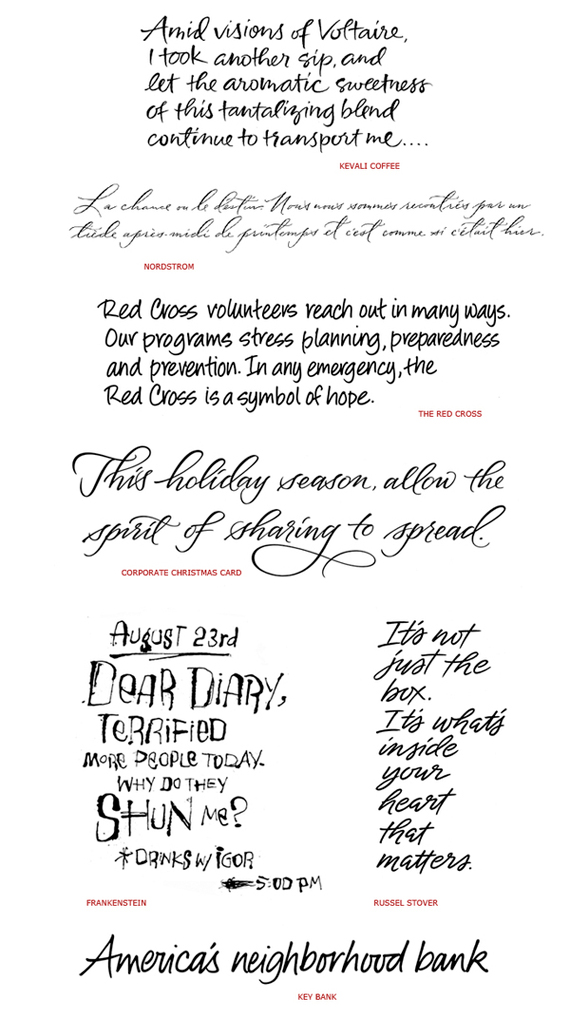 Amid visions of Voltaire,
I took another sip, and
let the aromatic sweetness
of this tantalizing blend
continue to transport me....
KEVALI COFFEE
La chance ou le destin. Nous nous sommes recontrés par un
tiède après-midi de printemps et c'est comme si c'était hier.
NORDSTROM
Red Cross volunteers reach out in many ways.
Our programs stress planning, preparedness
and prevention. In any emergency, the
Red Cross is a symbol of hope.
THE RED CROSS
This holiday season, allow the
spirit of sharing to spread.
CORPORATE CHRISTMAS CARD
August 23rd
DEAR DIARY,
TERRIFIED
MORE PEOPLE TODAY.
WHY DO THEY
SHUN Me?
*DRINKS W/ IGOR
5:00 PM
FRANKENSTEIN
It's not
just the
box.
It's what's
inside
your
heart
that
matters.
RUSSEL STOVER
America's neighborhood bank
KEY BANK